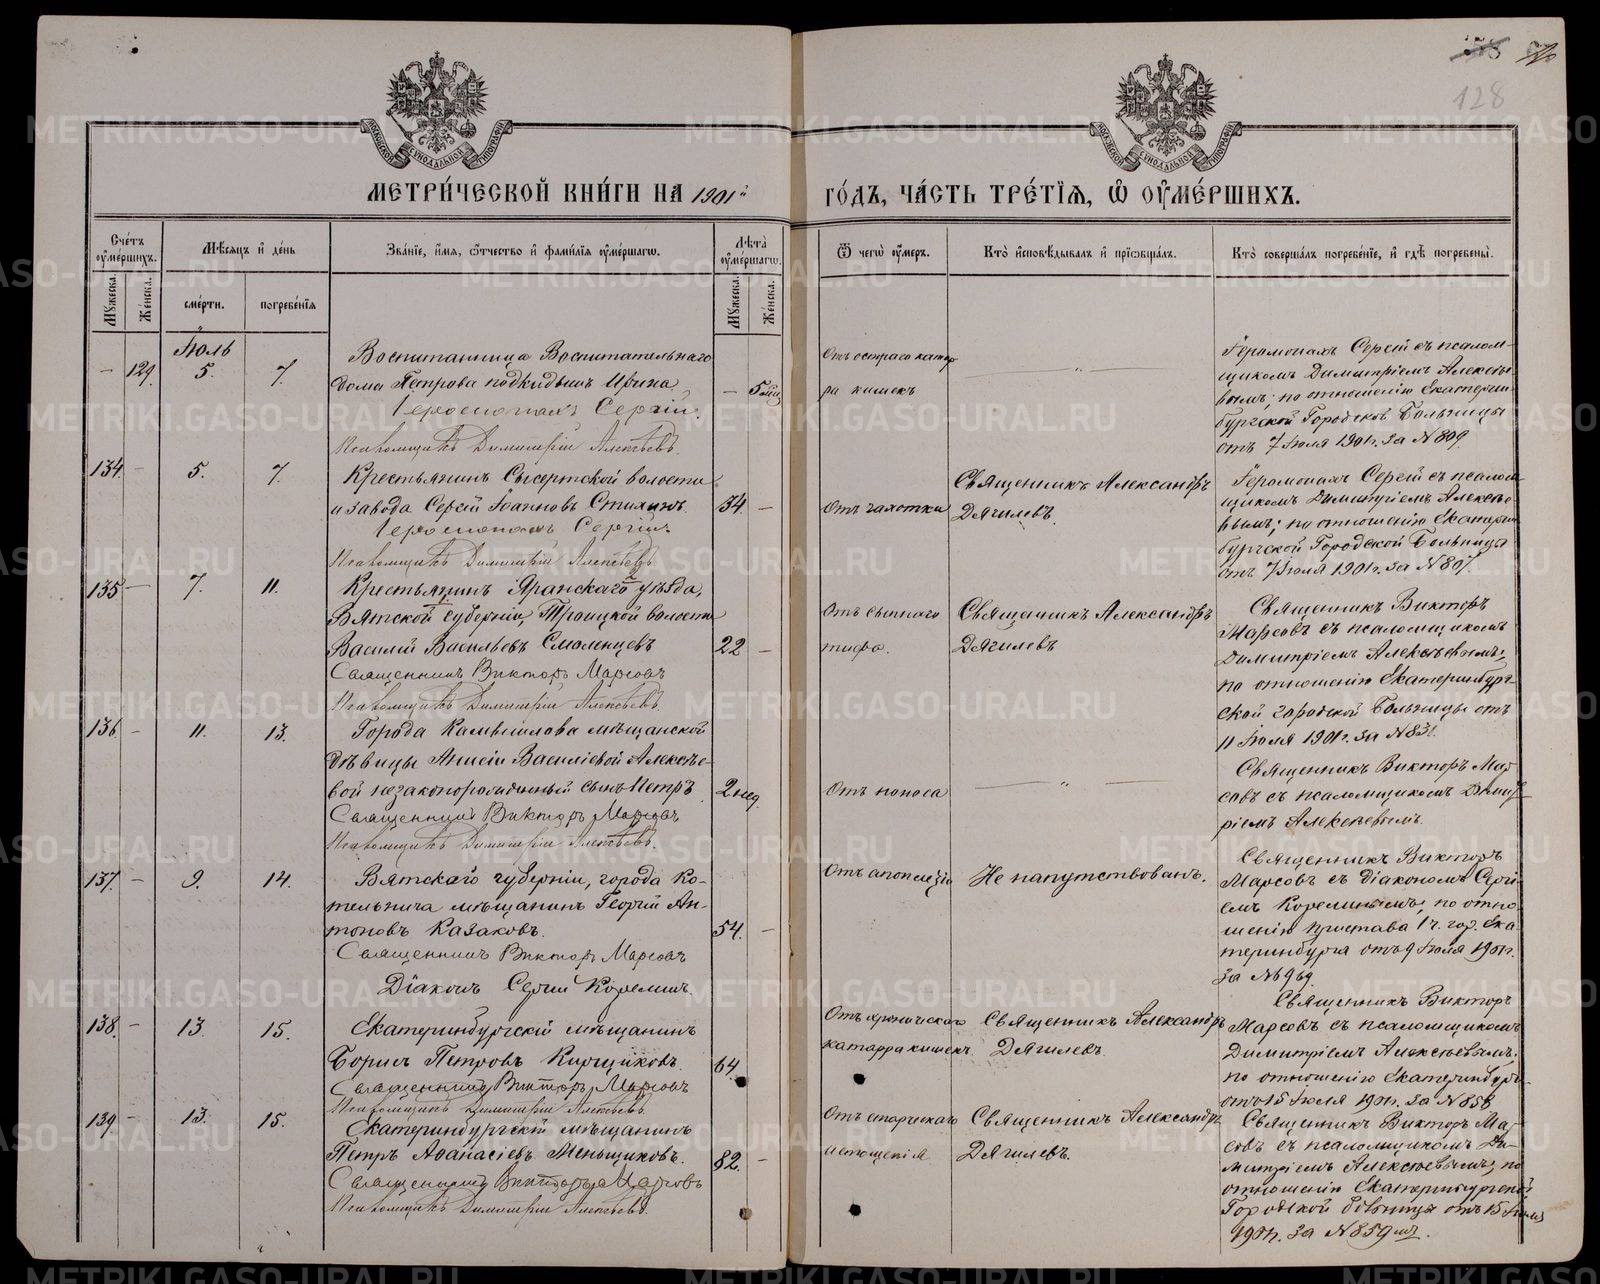 128
МЕТРИ́ЧЕСКОЙ КНИ́ГИ НА 1901й
ГО́ДЪ, ЧА́СТЬ ТРЕ́ТЇЯ, Ѡ҆ ОУ҆МЕ́РШИХЪ.
Сче́тъ оу҆ме́ршихъ.
Му́жеска.
Же́нска.
Мѣ́сяцъ и҆ де́нь
сме́рти.
погребе́нїя
Зва́нїе, и҆́мя, ѻ҆́тчество и҆ фами́лїя оу҆ме́ршагѡ.
Лѣ́та оу҆ме́ршагѡ.
Му́жеска.
Же́нска.
Ѿ чегѡ̀ оу҆́меръ.
Кто̀ и҆сповѣ́дывалъ и҆ прїѡбща́лъ.
Кто̀ соверша́лъ погребе́нїе, и҆ гдѣ̀ погребены̀.
Іюль
129. 5. 7.
Воспитанница Воспитательнаго
дома Петрова подкидышъ Ирина
5 мѣс
Іеромонахъ Сергій.
Псаломщикъ Димитрій Алексѣевъ.
Отъ остраго катар
ра кишекъ
Іеромонахъ Сергій съ псалом-
щикомъ Димитріемъ Алексѣе-
вымъ, по отношенію Екатерин-
бургской Городской Больницы
отъ 7 Іюля 1901 г. за №809.
134. 5. 7.
Крестьянинъ Сысертской волости
и завода Сергій Іоанновъ
34
Іеромонахъ Сергій.
Псаломщикъ Димитрій Алексѣевъ
Отъ чахотки
Священникъ Александръ
Дягилевъ.
Іеромонахъ Сергій съ псалом-
щикомъ Димитріемъ Алексѣе-
вымъ; по отношенію Екатерин-
бургской Городской Больницы
отъ 7 Іюля 1901 г. за №807.
135 7. 11.
Крестьянинъ Яранскаго уѣзда,
Вятской губерніи, Троицкой волости
Василій Васильевъ Смоленцевъ
22
Священникъ Викторъ Марсовъ
Псаломщикъ Димитрій Алексѣевъ.
Отъ сыпнаго
тифа.
Священникъ Александръ
Дягилевъ
Священникъ Викторъ
Марсовъ съ псаломщикомъ
Димитріемъ Алексѣевымъ,
по отношенію Екатеринбург-
ской городской Больницы отъ
11 Іюля 1901 г. за №831.
136 11. 13.
Города Камышлова мѣщанской
дѣвицы Анисіи Василіевой Алексѣе-
вой незаконорожденный сынъ Петръ
2 нед.
Священникъ Викторъ Марсовъ
Псаломщикъ Димитрій Алексѣевъ.
Отъ поноса
Священникъ Викторъ Мар-
совъ съ псаломщикомъ Димит-
ріемъ Алексѣевымъ.
137. 9. 14.
Вятскаго губерніи, города Ко-
тельнича мѣщанинъ Георгій Ан-
тоновъ Казаковъ.
54.
Священникъ Викторъ Марсовъ
Діаконъ Сергій Корелинъ
Отъ апоплеціи
Не напутствованъ.
Священникъ Викторъ
Марсовъ съ діакономъ Сергі-
емъ Корелинымъ; по отно-
шенію пристава 1 ч. гор. Ека-
теринбурга отъ 9 Іюля 1901 г.
138. 13. 15.
Екатеринбургскій мѣщанинъ
Борисъ Петровъ Кирщиковъ.
64.
Священникъ Викторъ Марсовъ
Псаломщикъ Димитрій Алексѣевъ.
Отъ хроническаго
катарра кишекъ
Священникъ Александръ
Дягилевъ
Священникъ Викторъ
Марсовъ съ псаломщикомъ
Димитріемъ Алексѣевымъ.
по отношенію Екатеринбург.
отъ 15 Іюля 1901 г. за №858
139 13. 15.
Екатеринбургскій мѣщанинъ
Петръ Аѳанасіевъ Меньщиковъ.
82.
Священникъ Викторъ Марсовъ
Псаломщикъ Димитрій Алексѣевъ.
Отъ старческаго
истощенія
Священникъ Александръ
Дягилевъ.
Священникъ Викторъ Мар-
совъ съ псаломщикомъ Ди-
митріемъ Алексѣевымъ; по
отношенію Екатеринбургской
Городской больницы отъ 15 Іюля
1901 г. за №859
METRIKI.GASO-URAL.RU